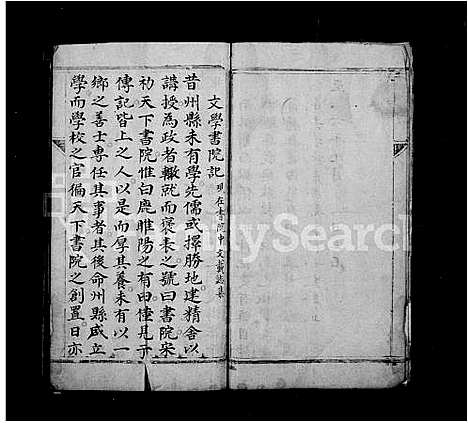 文學書院記 現在書院中文載誌集
昔州縣未有學先儒或擇勝地建精舍以
講授為政者輙就而褒表之號曰書院宋
初天下書院惟白鹿睢陽之有由僅見于
傳記皆上之人以是而厚其養未有以一
鄉之善士專任其事者其後命州縣咸立
學而學校之官徧天下書院之創置日亦
FamilySearch